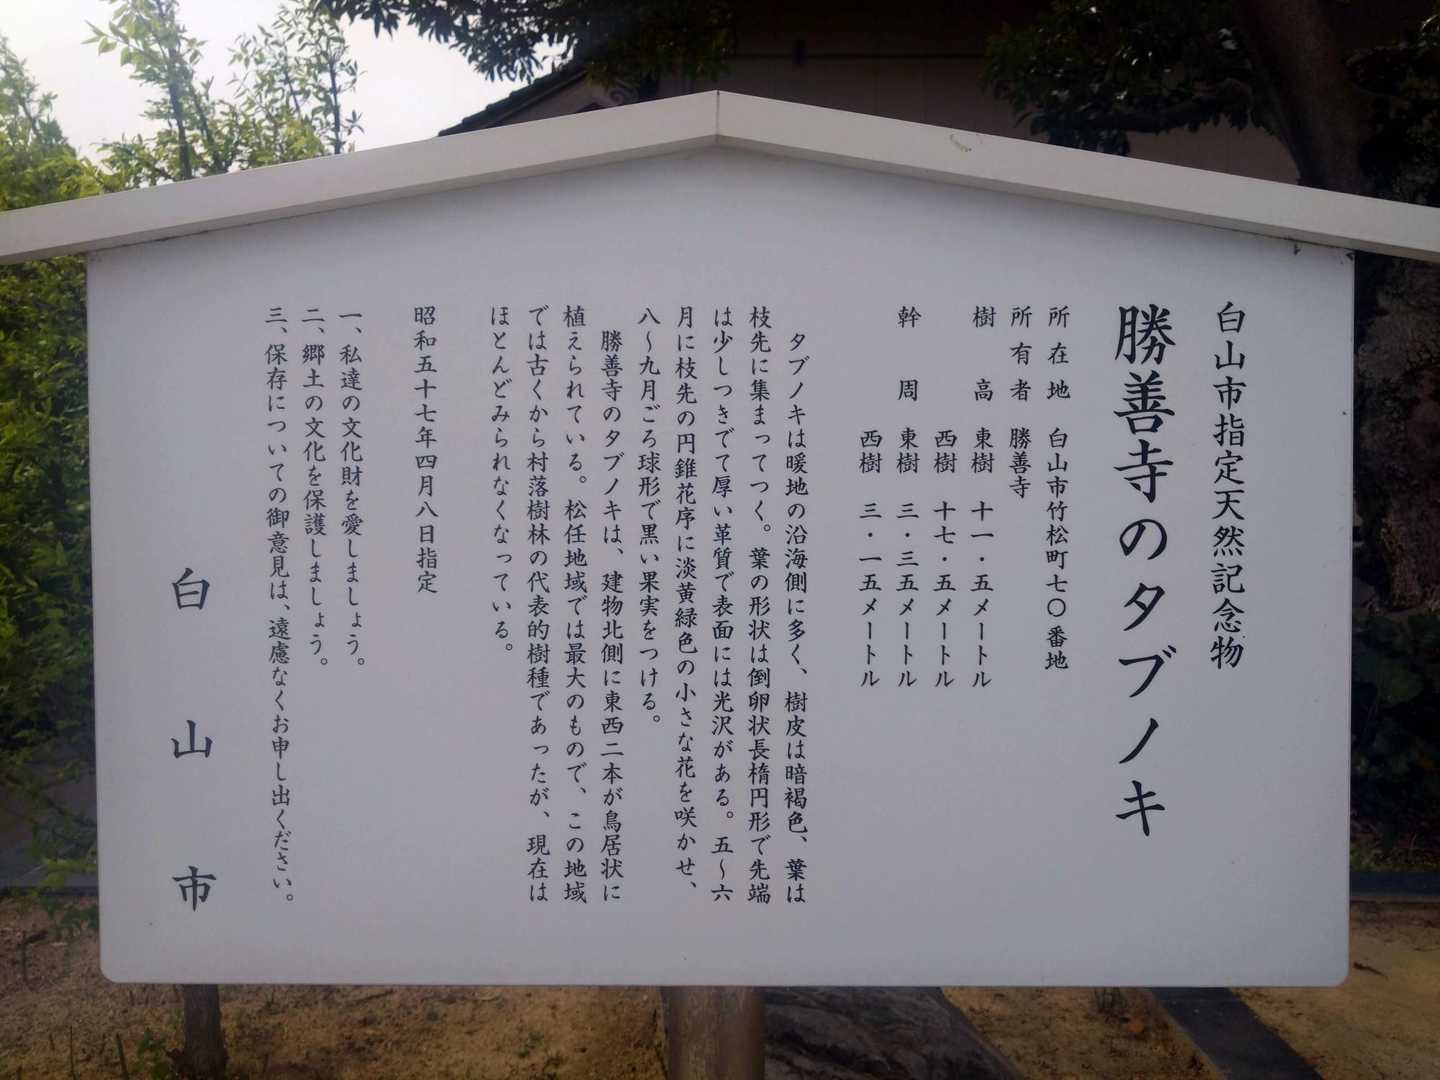 白山市指定天然記念物
勝善寺のタブノキ
所在地　白山市竹松町七〇番地
所有者　勝善寺
樹　高　東樹　十一・五メートル
西樹　十七・五メートル
幹　周　東樹　三・三五メートル
西樹　三・一五メートル
タブノキは暖地の沿海側に多く、樹皮は暗褐色、葉は
枝先に集まってつく。葉の形状は倒卵状長楕円形で先端
は少しつきでて厚い革質で表面には光沢がある。五〜六
月に枝先の円錐花序に淡黄緑色の小さな花を咲かせ、
八〜九月ごろ球形で黒い果実をつける。
勝善寺のタブノキは、建物北側に東西二本が鳥居状に
植えられている。松任地域では最大のもので、この地域
では古くから村落樹林の代表的樹種であったが、現在は
ほとんどみられなくなっている。
昭和五十七年四月八日指定
一、私達の文化財を愛しましょう。
二、郷土の文化を保護しましょう。
三、保存についての御意見は、遠慮なくお申し出ください。
白山市